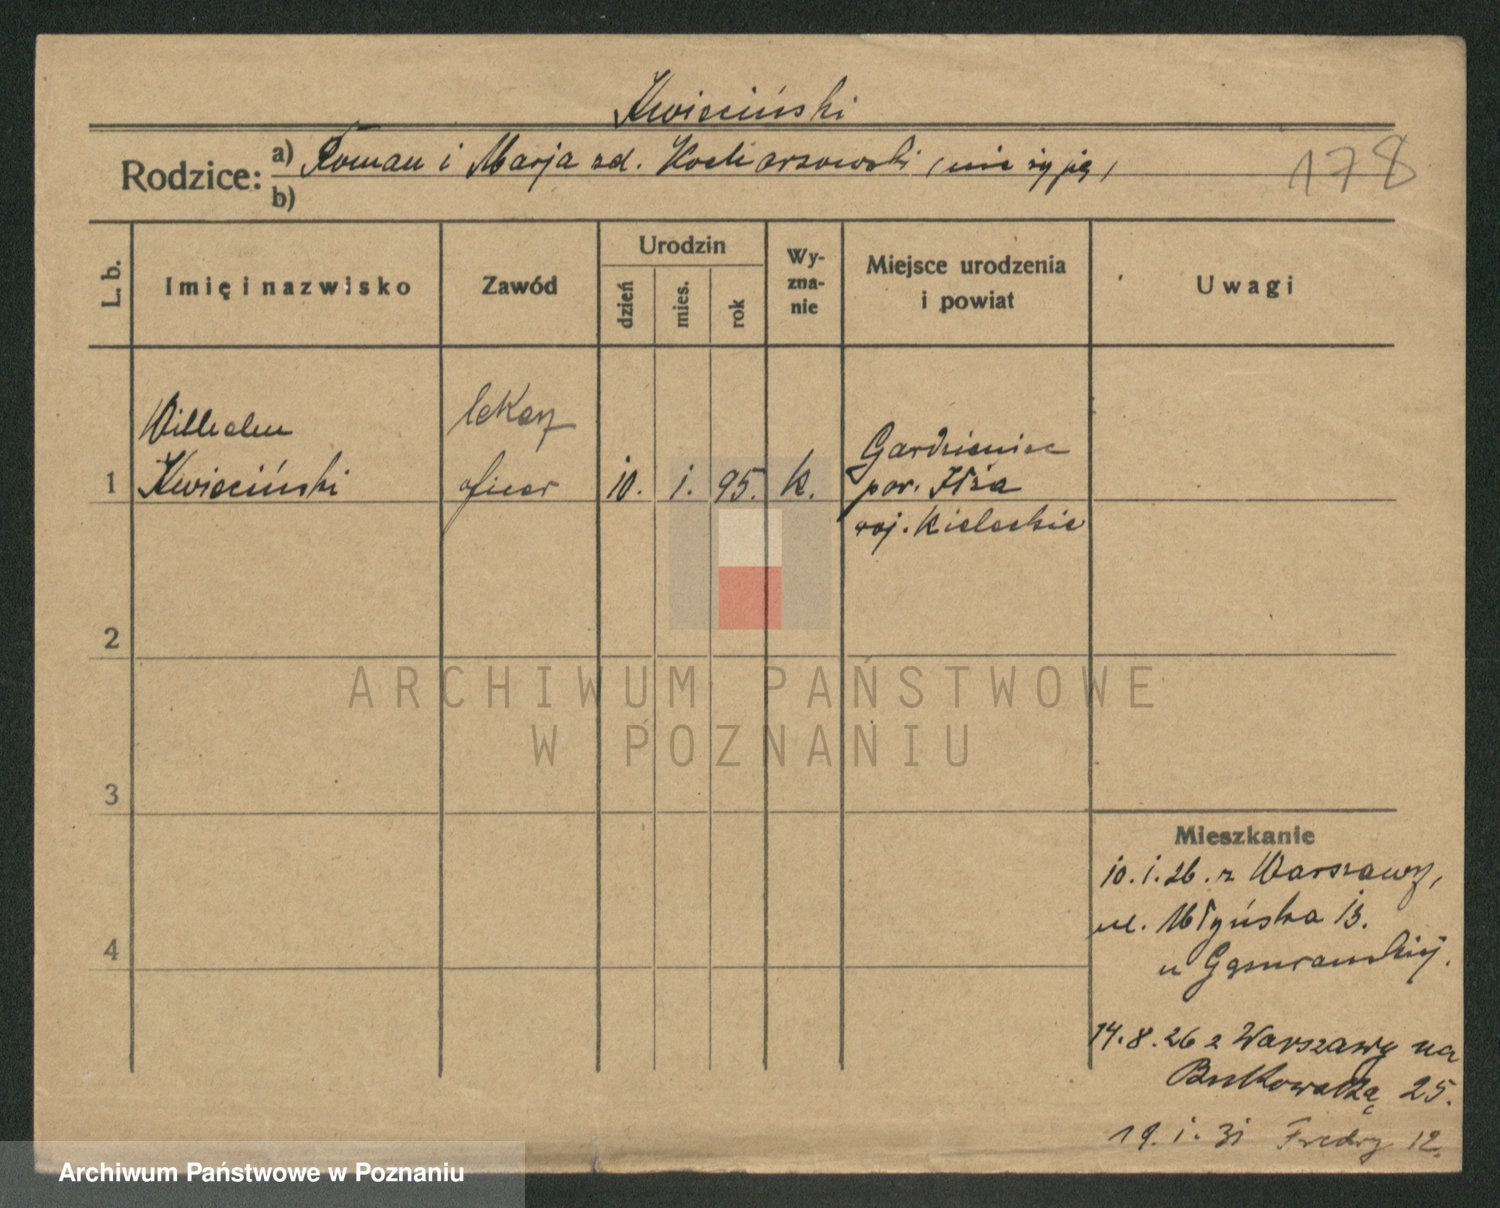 Kwieciński
Rodzice: a) Roman i Marja zd. Kocharzowski (nie żyją)
b)
178
L. b.
Imię i nazwisko
Zawód
Urodzin
dzień
mies.
rok
Wy-
zna-
nie
Miejsce urodzenia
i powiat
Uwagi
1
Wilhelm
Kwieciński
lekarz
oficer
10.
1.
95.
k.
Gardzienice
pow. Iłża
woj. Kieleckie
2
3
4
Mieszkanie
10.1.26. z Warszawy,
ul. Młyńska 13.
u
14.8.26 z Warszawy na
Bukowską 25.
19.1.31 Fredry 12.
ARCHIWUM PAŃSTWOWE
W POZNANIU
Archiwum Państwowe w Poznaniu